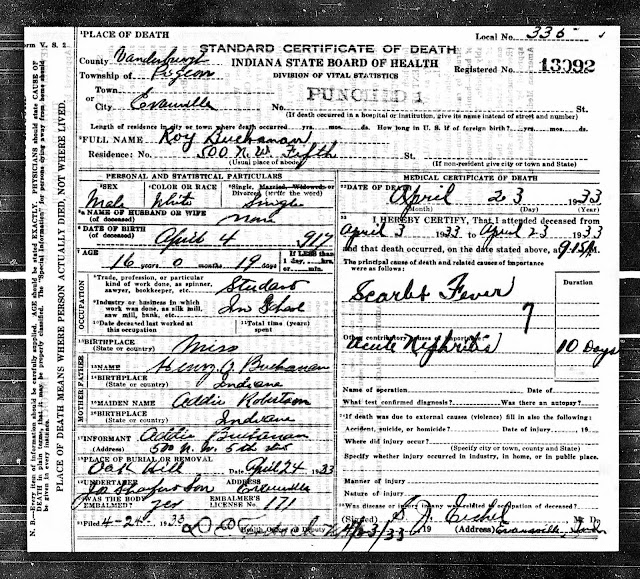 ¹PLACE OF DEATH
Local No. 336
Form V. S. 2
STANDARD CERTIFICATE OF DEATH
County Vanderburgh
INDIANA STATE BOARD OF HEALTH
Registered No. 13092
Township of Pigeon
DIVISION OF VITAL STATISTICS
Town
or
City Evansville No. St.
PUNCHED 1
(If death occurred in a hospital or institution, give its name instead of street and number)
Length of residence in city or town where death occurred yrs. mos. ds. How long in U. S. if of foreign birth? yrs. mos. ds.
²FULL NAME Roy Buchanan
Residence: No. 500 N.W. Fifth St.
(Usual place of abode) (If non-resident give city or town and State)
PERSONAL AND STATISTICAL PARTICULARS
³SEX Male
⁴COLOR OR RACE White
⁵Single, Married, Widowed or Divorced (write the word) Single
NAME OF HUSBAND OR WIFE
(of deceased) None
DATE OF BIRTH
(of deceased) April 4 917
AGE 16 years 0 months 19 days
If LESS than 1 day, hrs. or min.
OCCUPATION
Trade, profession, or particular kind of work done, as spinner, sawyer, bookkeeper, etc. Student
Industry or business in which work was done, as silk mill, saw mill, bank, etc. In School
Date deceased last worked at this occupation
Total time (years) spent
BIRTHPLACE
(State or country) Miss
MOTHER FATHER
NAME Henry A Buchanan
BIRTHPLACE
(State or country) Indiana
MAIDEN NAME Addie
BIRTHPLACE
(State or country) Indiana
INFORMANT Addie Buchanan
(Address) 500 N.W. 5th
PLACE OF BURIAL OR REMOVAL
Oak Hill Date April 24 1933
UNDERTAKER ADDRESS
Son Evansville
WAS THE BODY EMBALMED? yes
EMBALMER'S LICENSE No. 171
Filed 4-24- 1933
Health Officer or Deputy
MEDICAL CERTIFICATE OF DEATH
DATE OF DEATH April 23 1933
(Month) (Day) (Year)
I HEREBY CERTIFY, That I attended deceased from
April 3 1933 to April 23 1933
and that death occurred, on the date stated above, at
The principal cause of death and related causes of importance were as follows:
Duration
Scarlet Fever
7
Other contributory causes of importance:
Acute Nephritis 10 Days
Name of operation Date of
What test confirmed diagnosis? Was there an autopsy?
If death was due to external causes (violence) fill in also the following:
Accident, suicide, or homicide? Date of injury 19
Where did injury occur?
(Specify city or town, county and State)
Specify whether injury occurred in industry, in home, or in public place.
Manner of injury
Nature of injury
Was disease or injury in any way related to occupation of deceased?
(Signed) M. D.
4/23/33 19 (Address) Evansville, Ind
N. B.—Every item of information should be carefully supplied. AGE should be stated EXACTLY. PHYSICIANS should state CAUSE OF DEATH in plain terms, that it may be properly classified. The "Special information" for persons dying away from home should be given in every instance.
PLACE OF DEATH MEANS WHERE PERSON ACTUALLY DIED, NOT WHERE LIVED.